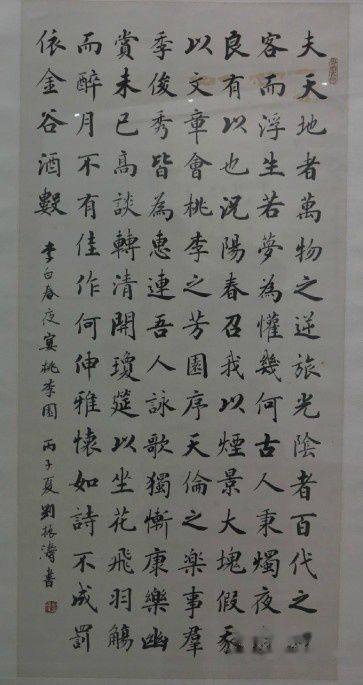 夫天地者萬物之逆旅光陰者百代之
客而浮生若夢為懽幾何古人秉燭夜
良有以也況陽春召我以煙景大塊假
以文章會桃李之芳園序天倫之楽事羣
季俊秀皆為惠連吾人詠歌獨慚康樂幽
賞未已高談轉清開瓊筵以坐花飛羽觴
而醉月不有佳作何伸雅懷如詩不成罰
依金谷酒數 李白春夜宴桃李園 丙子夏劉振濤書